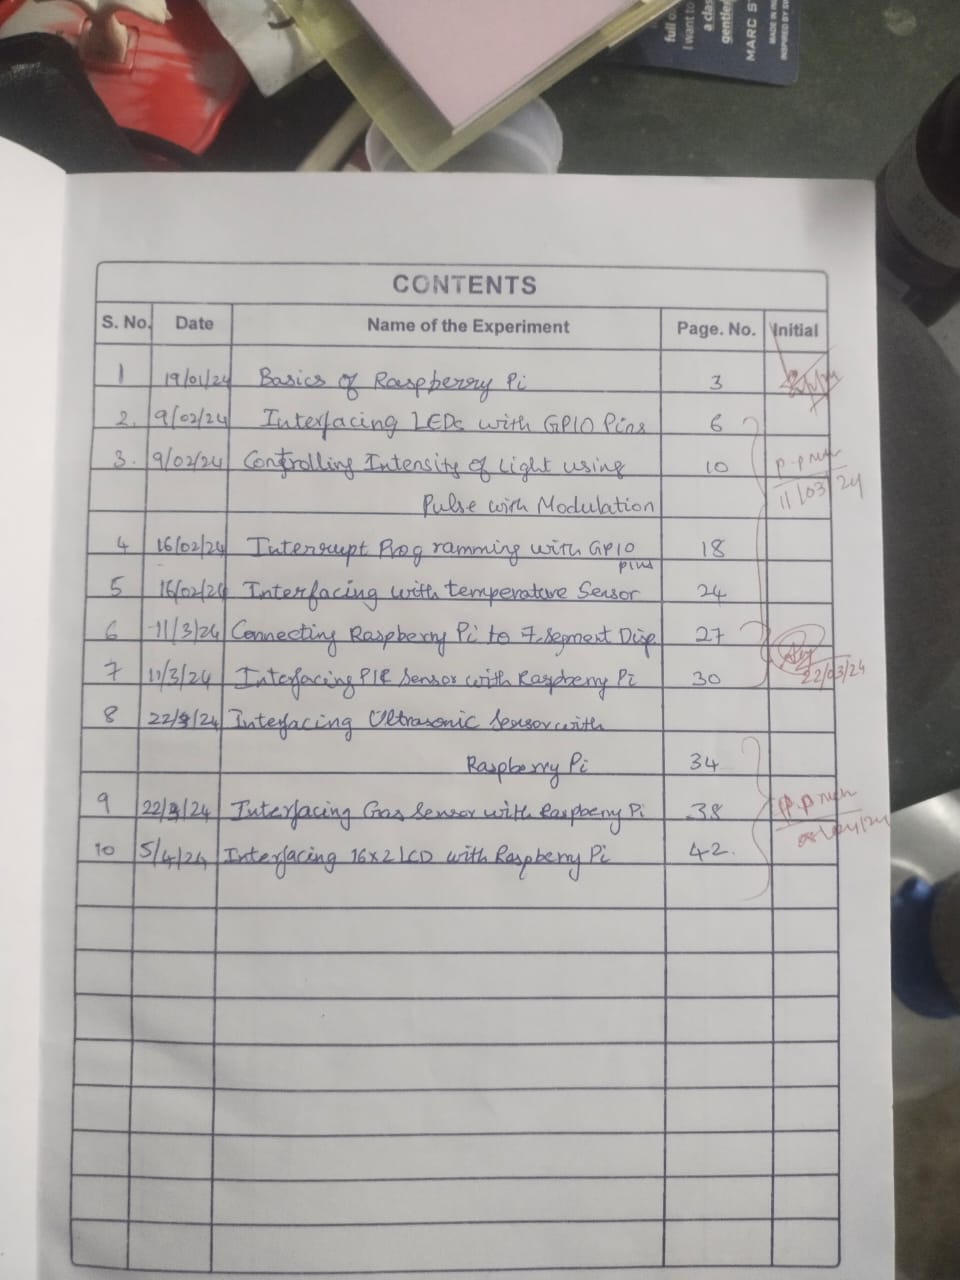 full o
I want to
a clas
gentle
MARC S
MADE IN IN
INSPIRED BY SW
CONTENTS
S. No. Date Name of the Experiment Page. No. Initial
1 19/01/24 Basics of Raspberry Pi 3
2. 9/02/24 Interfacing LEDs with GPIO Pins 6
3. 9/02/24 Controlling Intensity of Light using 10
Pulse with Modulation
11/03/24
4 16/02/24 Interrupt Programming with GPIO 18
pins
5 16/02/24 Interfacing with temperature Sensor 24
6 11/3/24 Connecting Raspberry Pi to 7-Segment Disp. 27
7 11/3/24 Interfacing PIR Sensor with Raspberry Pi 30
22/03/24
8 22/3/24 Interfacing Ultrasonic Sensor with
Raspberry Pi 34
9 22/3/24 Interfacing Gas Sensor with Raspberry Pi 38
10 5/4/24 Interfacing 16x2 LCD with Raspberry Pi 42.